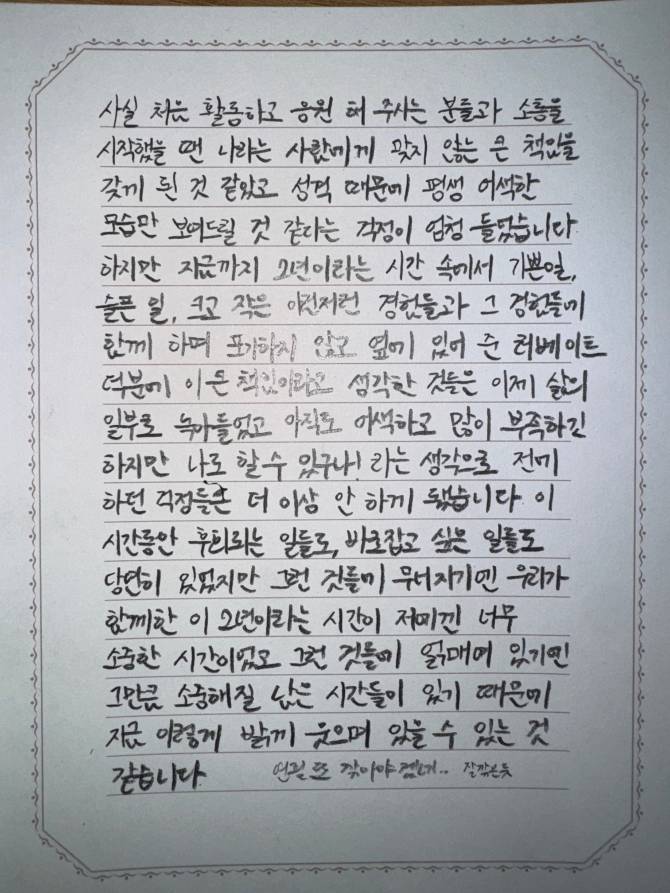 사실 처음 활동하고 응원 해 주시는 분들과 소통을
시작했을 땐 나라는 사람에게 맞지 않는 큰 책임을
갖게 된 것 같았고 성격 때문에 평생 어색한
모습만 보여드릴 것 같다는 걱정이 엄청 들었습니다
하지만 지금까지 2년이라는 시간 속에서 기쁜일,
슬픈 일, 크고 작은 이런저런 경험들과 그 경험들에
함께 하며 포기하지 않고 옆에 있어 준 러베이트
덕분에 이 큰 책임이라고 생각한 것들은 이제 삶의
일부로 녹아들었고 아직도 어색하고 많이 부족하긴
하지만 나도 할 수 있구나! 라는 생각으로 전에
하던 걱정들은 더 이상 안 하게 됐습니다 이
시간동안 후회되는 일들도, 바로잡고 싶은 일들도
당연히 있었지만 그런 것들에 무너지기엔 우리가
함께한 이 2년이라는 시간이 저에겐 너무
소중한 시간이었고 그런 것들에 얽매여 있기엔
그만큼 소중해질 남은 시간들이 있기 때문에
지금 이렇게 밝게 웃으며 있을 수 있는 것
같습니다 연필 또 깎아야 겠네.. 잘깎은듯